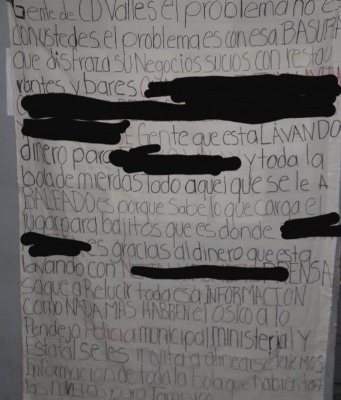 Gente de CD Valles el problema no e
con ustedes el problema es con esa BASURA
que disfraza su Negocios sucios con restau
rantes y bares
E Gente que esta LAVANDO
dinero para y toda la
bola de mierdas todo aquel que se le A
BALEADO es porque Sabe lo que carga el
lugar para bajitos que es donde
es gracias al dinero que esta
lavando con PRENSA
saque a Relucir toda esa INFORMACION
como NADA MAS HABREN el OSICO a lo
Pendejo Policia municipal Ministerial Y
Estatal se les invita a alinearse
Informacion de toda la bola que